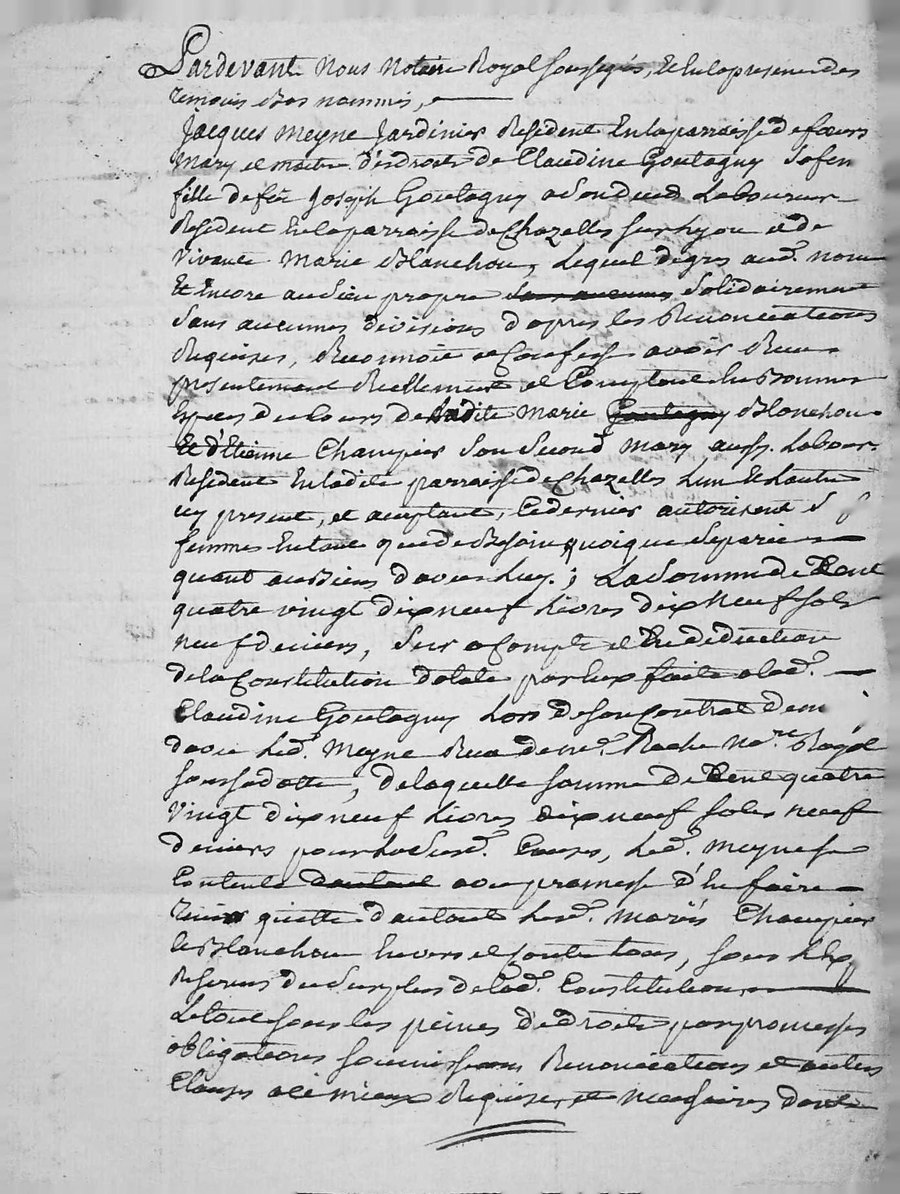 Pardevant Nous Notaire Royal soussignés, et en la presence des
temoins Bas nommés,
Jacques Meyne Jardinier Resident En la parroisse de
Mary et maitre des droits de Claudine Goutagny Safem
fille de feu Joseph Goutagny Laboureur
Resident En la parroisse de Chazelles sur Lyon et de
Vivante Marie Blanchou, Lequel de gres aud. nom
Et Encore au Sien propre sans aucunes Solidairement
Sans aucunes divisions d'apres les Renonciations
Requises, Reconnoit et Confesse avoir Reçu
presentement Reellement et Comptant En Bonnes
Especes de Cours de ladite Marie Goutagny Blanchou
Et d'Etienne Champier Son Second Mary aussy Labour.
Resident En ladite parroisse de Chazelles Lun Et Lautre
icy present, et acceptant, Ce dernier autorisent S
femme En tant que de Besoin quoique Separée
quant aux Biens d'avec Luy; La Somme de Cent
quatre vingt dix neuf Livres dix Neuf sols
neuf deniers, Sur et a Compte et En deduction
de la Constitution dotale par Eux faite a lad.
Claudine Goutagny Lors de Son Contrat de m
davec Led. Meyne Reçu de me. Roche Nore. Royal
sous sa datte, de laquelle somme de Cent quatre
Vingt dix neuf Livres dix neuf sols neuf
deniers pour La Susd. Causes, Led. Meyne se
Contente dautant avec promesse d'En faire
tenir quitte d'autant Lesd. Mariés Champier
et Blanchou Envers et Contre tous, sous
Reserves du Surplus de lad. Constitution,
Le tout sous les peines de droits par promesses
obligations soumissions Renonciations et autres
Clauses a ce mieux Requises et necessaires dont